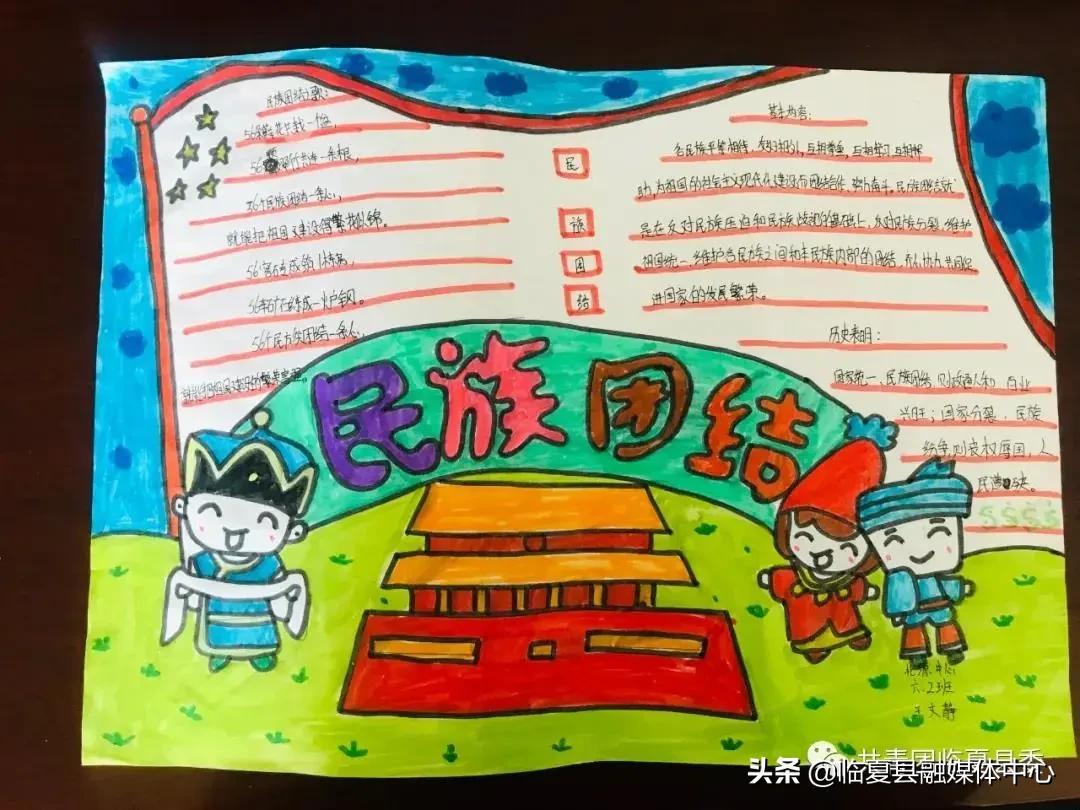 民族团结之歌:
56棵花卉栽一盆,
56 翠竹共连一条根,
56个民族团结一条心,
就能把祖国建设得繁花似锦。
56窑砖砌成一栋高
56车矿石炼成一炉钢。
56个民族团结一条心,
民
族
团
结
基本内容:
各民族平等相待、友好相处、互相尊重、互相学习、互相帮
助,为祖国的社会主义现代化建设而团结合作、努力奋斗。民族团结就
是在反对民族压迫和民族歧视的基础上,反对民族分裂、维护
祖国统一、维护各民族之间和本民族内部的团结,齐心协力共同促
进国家的发展繁荣。
历史表明:
国家统一、民族团结,则政通人和、百业
兴旺;国家分裂、民族
纷争,则丧权辱国,人
民遭殃。
民族团结
六.2班
王文静
共青团临夏县委
头条 @临夏县融媒体中心